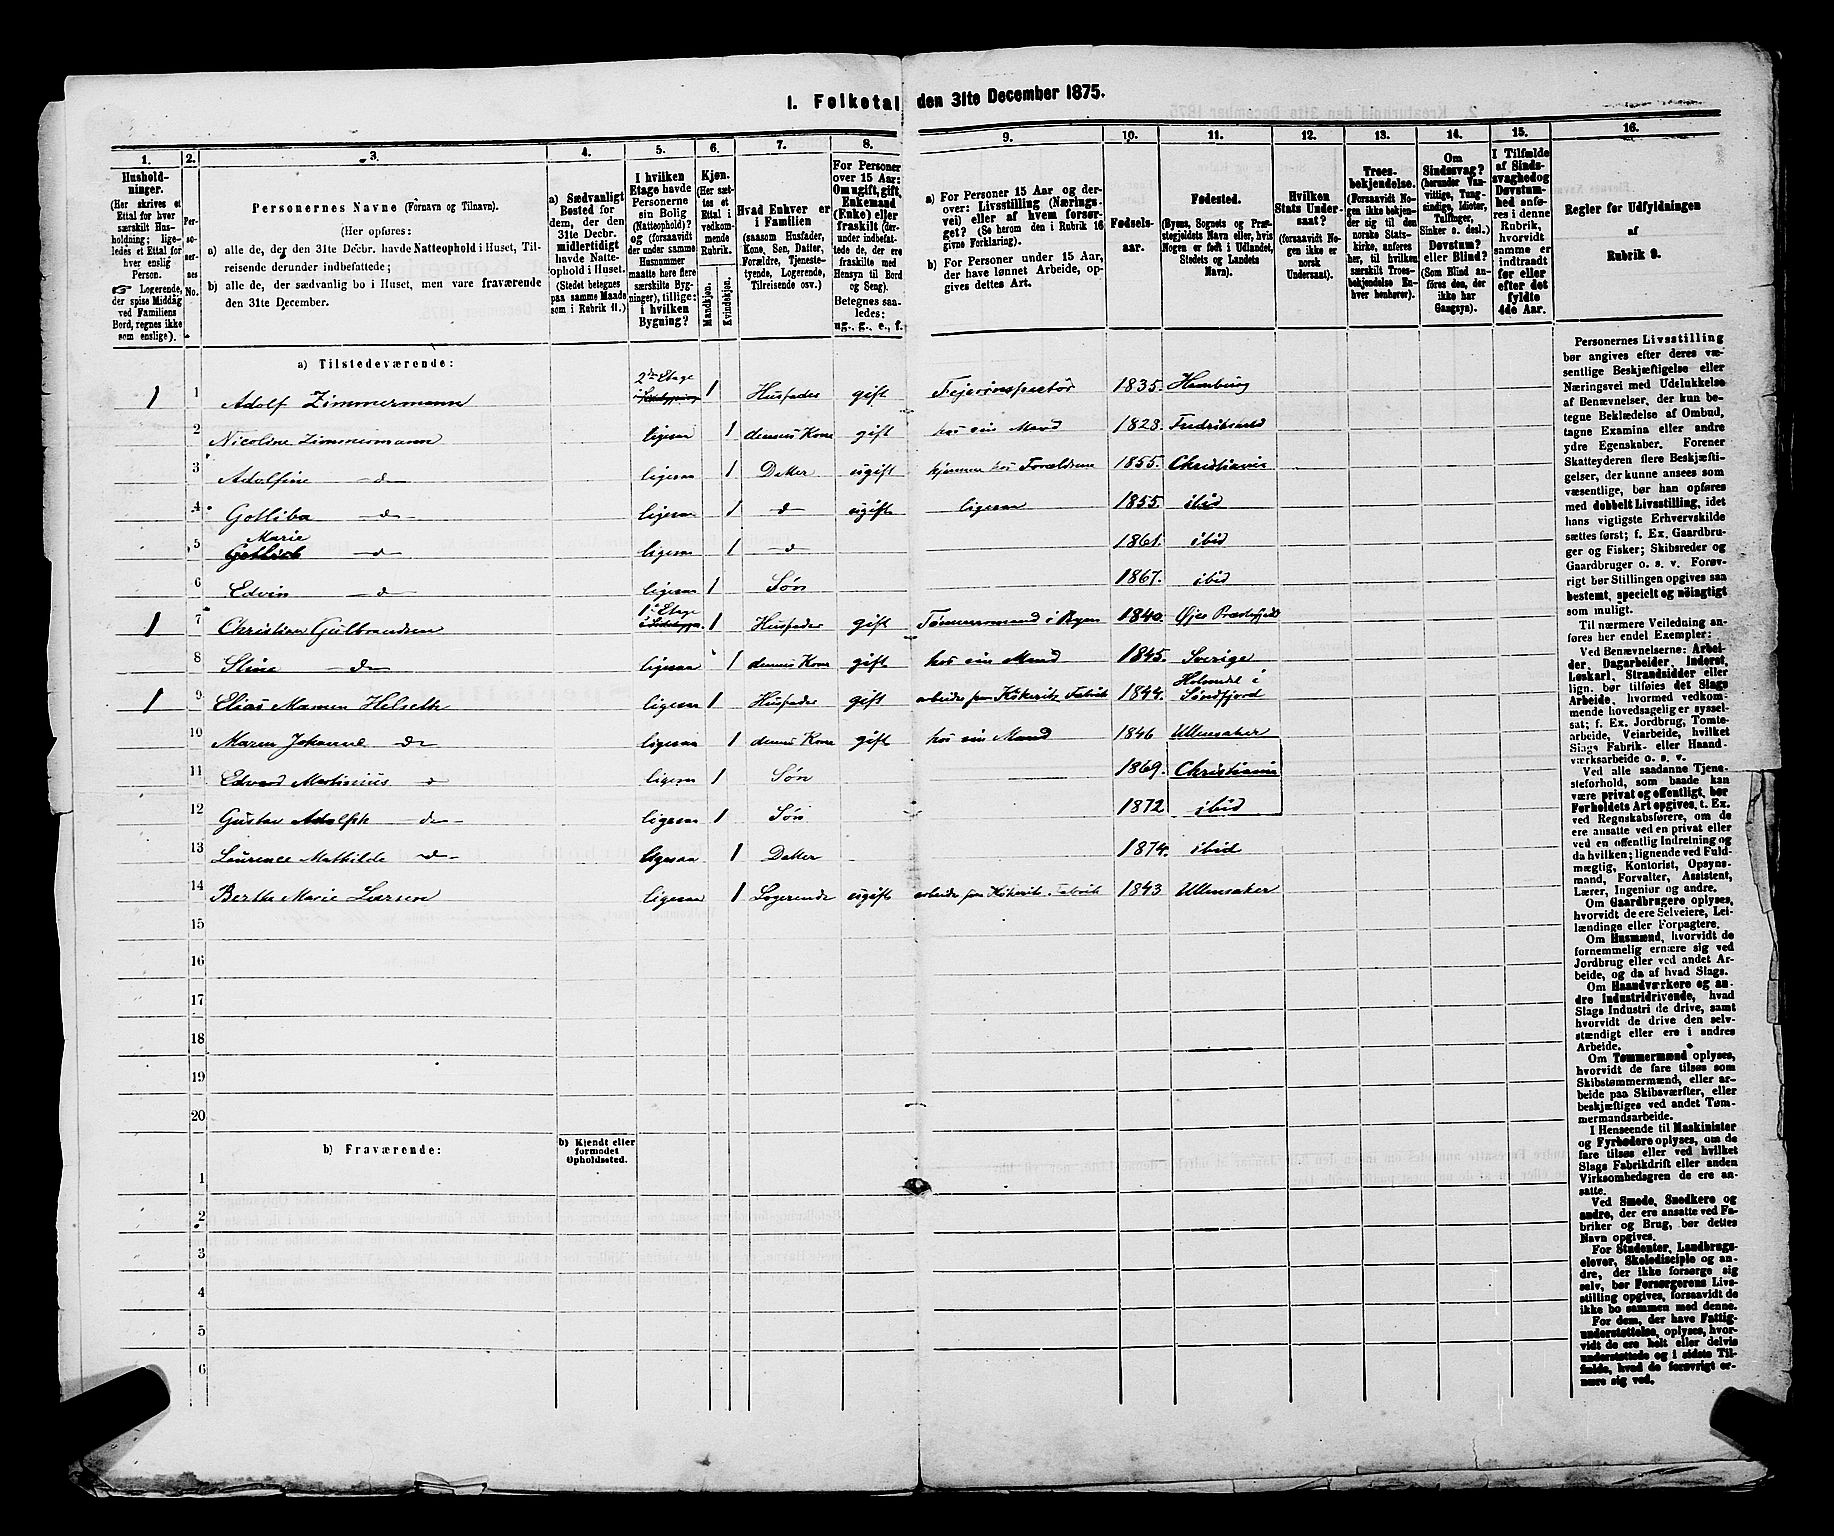 1. Folketal den 31te December 1875.
1. 2. 3. 4. 5. 6. 7. 8. 9. 10. 11. 12. 13. 14. 15. 16.
Hushold-
ninger.
(Her skrives et
Ettal for hver
særskilt Hus-
holdning; lige-
ledes et Ettal for
hver enslig
Person.
Logerende,
der spise Middag
ved Familiens
Bord, regnes ikke
som enslige).
Per-
so-
ner-
nes
No.
Personernes Navne (Fornavn og Tilnavn).
(Her opføres:
a) alle de, der den 31te Decbr. havde Natteophold i Huset, Til-
reisende derunder indbefattede;
b) alle de, der sædvanlig bo i Huset, men vare fraværende
den 31te December.
a) Sædvanligt
Bosted for
dem, der den
31te Decbr.
midlertidigt
havde Natte-
ophold i Huset.
(Stedet betegnes
paa samme Maade
som i Rubrik 11.)
I hvilken
Etage havde
Personerne
sin Bolig
(Natteophold)?
og (forsaavidt
der under samme
Husnummer
maatte høre flere
særskilte Byg-
ninger), tillige:
i hvilken
Bygning?
Kjøn.
(Her sæt-
tes et
Ettal i
vedkom-
mende
Rubrik.
Mandkjøn.
Kvindekjøn.
Hvad Enhver er
i Familien
(saasom Husfader,
Kone, Søn, Datter,
Forældre, Tjeneste-
tyende, Logerende,
Tilreisende osv.)
For Personer
over 15 Aar:
Om ugift, gift,
Enkemand
(Enke) eller
fraskilt (der-
under indbefat-
tede de, der ere
fraskilte med
Hensyn til Bord
og Seng).
Betegnes saa-
ledes:
ug., g., e., f.
a) For Personer 15 Aar og der-
over: Livsstilling (Nærings-
vei) eller af hvem forsør-
get? (Se herom den i Rubrik 16
givne Forklaring).
b) For Personer under 15 Aar,
der have lønnet Arbeide, op-
gives dettes Art.
Fødsels-
aar.
Fødested.
(Byens, Sognets og Præ-
stegjeldets Navn eller, hvis
Nogen er født i Udlandet,
Stedets og Landets
Navn).
Hvilken
Stats Under-
saat?
(forsaavidt No-
gen ikke er
norsk
Undersaat).
Troes-
bekjendelse.
(Forsaavidt No-
gen ikke bekjen-
der sig til den
norske Stats-
kirke, anføres
her, til hvilken
særskilt Troes-
bekjendelse En-
hver henhører).
Om
Sindssvag?
(herunder Van-
vittige, Tung-
sindige, Idioter,
Tullinger,
Sinker o. desl.)
Døvstum?
eller Blind?
(Som Blind an-
føres den, der
ikke har
Gangsyn).
I Tilfælde
af Sinds-
svaghed og
Døvstum-
hed anfø-
res i denne
Rubrik,
hvorvidt
samme er
indtraadt
før eller
efter det
fyldte
4de Aar.
Regler for Udfyldningen
af
Rubrik 9.
a) Tilstedeværende:
1 1 Adolf Zimmermann 2den Etage 1 Husfader gift Feierinspectør 1835. Hamburg
2 Nicoline Zimmermann ligesaa 1 dennes Kone gift hos sin Mand 1828. Fredrikshald
3 Adolfine d ligesaa 1 Datter ugift hjemme hos Forældrene 1855. Christiania
4 Gotliba d ligesaa 1 d ugift ligesaa 1855. ibid
5 Marie d ligesaa 1 d 1861. ibid
6 Edvin d ligesaa 1 Søn 1867. ibid
1 7 Christian Gulbrandsen 1ste Etage 1 Husfader gift Tømmermand i Byen 1840.
8 Stine d ligesaa 1 dennes Kone gift hos sin Mand 1845. Sverige
1 9 Elias Helseth ligesaa 1 Husfader gift 1844. i Søndfjord
10 Maren Johanne d ligesaa 1 dennes Kone gift hos sin Mand 1846 Ullensaker
11 Edvard Martinius d ligesaa 1 Søn 1869. Christiania
12 Gustav Adolph d ligesaa 1 Søn 1872 ibid
13 Laurence Mathilde d ligesaa 1 Datter 1874. ibid
14 Berthe Marie Larsen ligesaa 1 Logerende ugift 1843 Ullensaker
15
16
17
18
19
20
b) Fraværende:
b) Kjendt eller
formodet
Opholdssted.
1
2
3
4
5
6
Personernes Livsstilling
bør angives efter deres væ-
sentlige Beskjæftigelse eller
Næringsvei med Udelukkelse
af Benævnelser, der kun be-
tegne Beklædelse af Ombud,
tagne Examina eller andre
ydre Egenskaber. Forener
Skatteyderen flere Beskjæfti-
gelser, der kunne ansees som
væsentlige, bør han opføres
med dobbelt Livsstilling, idet
hans vigtigste Erhvervskilde
sættes først; f. Ex. Gaardbru-
ger og Fisker; Skibsreder og
Gaardbruger o. s. v. Forøv-
rigt bør Stillingen opgives saa
bestemt, specielt og nøiagtigt
som muligt.
Til nærmere Veiledning an-
føres her endel Exempler:
Ved Benævnelserne: Arbei-
der, Dagarbeider, Inderst,
Løskarl, Strandsidder eller
lign. bør tilføies det Slags
Arbeide, hvormed vedkom-
mende hovedsagelig er syssel-
sat; f. Ex. Jordbrug, Tomte-
arbeide, Veiarbeide, hvilket
Slags Fabrik- eller Haand-
værksarbeide o. s. v.
Ved alle saadanne Tjene-
steforhold, som baade kan
være privat og offentligt, bør
Forholdets Art opgives, t. Ex.
ved Regnskabsførere, om de
ere ansatte ved en privat eller
ved en offentlig Indretning og
da hvilken; lignende ved Fuld-
mægtig, Kontorist, Opsyns-
mand, Forvalter, Assistent,
Lærer, Ingeniør og andre.
Om Gaardbrugere oplyses,
hvorvidt de ere Selveiere, Lei-
lændinge eller Forpagtere.
Om Husmænd, hvorvidt de
fornemmelig ernære sig ved
Jordbrug eller ved andet Ar-
beide, og da af hvad Slags.
Om Haandværkere og an-
dre Industridrivende, hvad
Slags Industri de drive, samt
hvorvidt de drive den selv-
stændigt eller ere i andres
Arbeide.
Om Tømmermænd oplyses,
hvorvidt de fare tilsøs som
Skibstømmermænd, eller ar-
beide paa Skibsværfter, eller
beskjæftiges ved andet Tøm-
mermandsarbeide.
I Henseende til Maskinister
og Fyrbødere oplyses, om de
fare tilsøs eller ved hvilket
Slags Fabrikdrift eller anden
Virksomhedsgren de ere an-
satte.
Ved Smede, Snedkere og
andre, der ere ansatte ved Fa-
briker og Brug, bør dettes
Navn opgives.
For Studenter, Landbrugs-
elever, Skoledisciple og an-
dre, der ikke forsørge sig
selv, bør Forsørgerens Livs-
stilling opgives, forsaavidt de
ikke bo sammen med denne.
For dem, der have Fattig-
understøttelse, oplyses, hvor-
vidt de ere helt eller delvis
understøttede og i sidste Til-
fælde, hvad de forøvrigt er-
nære sig ved.